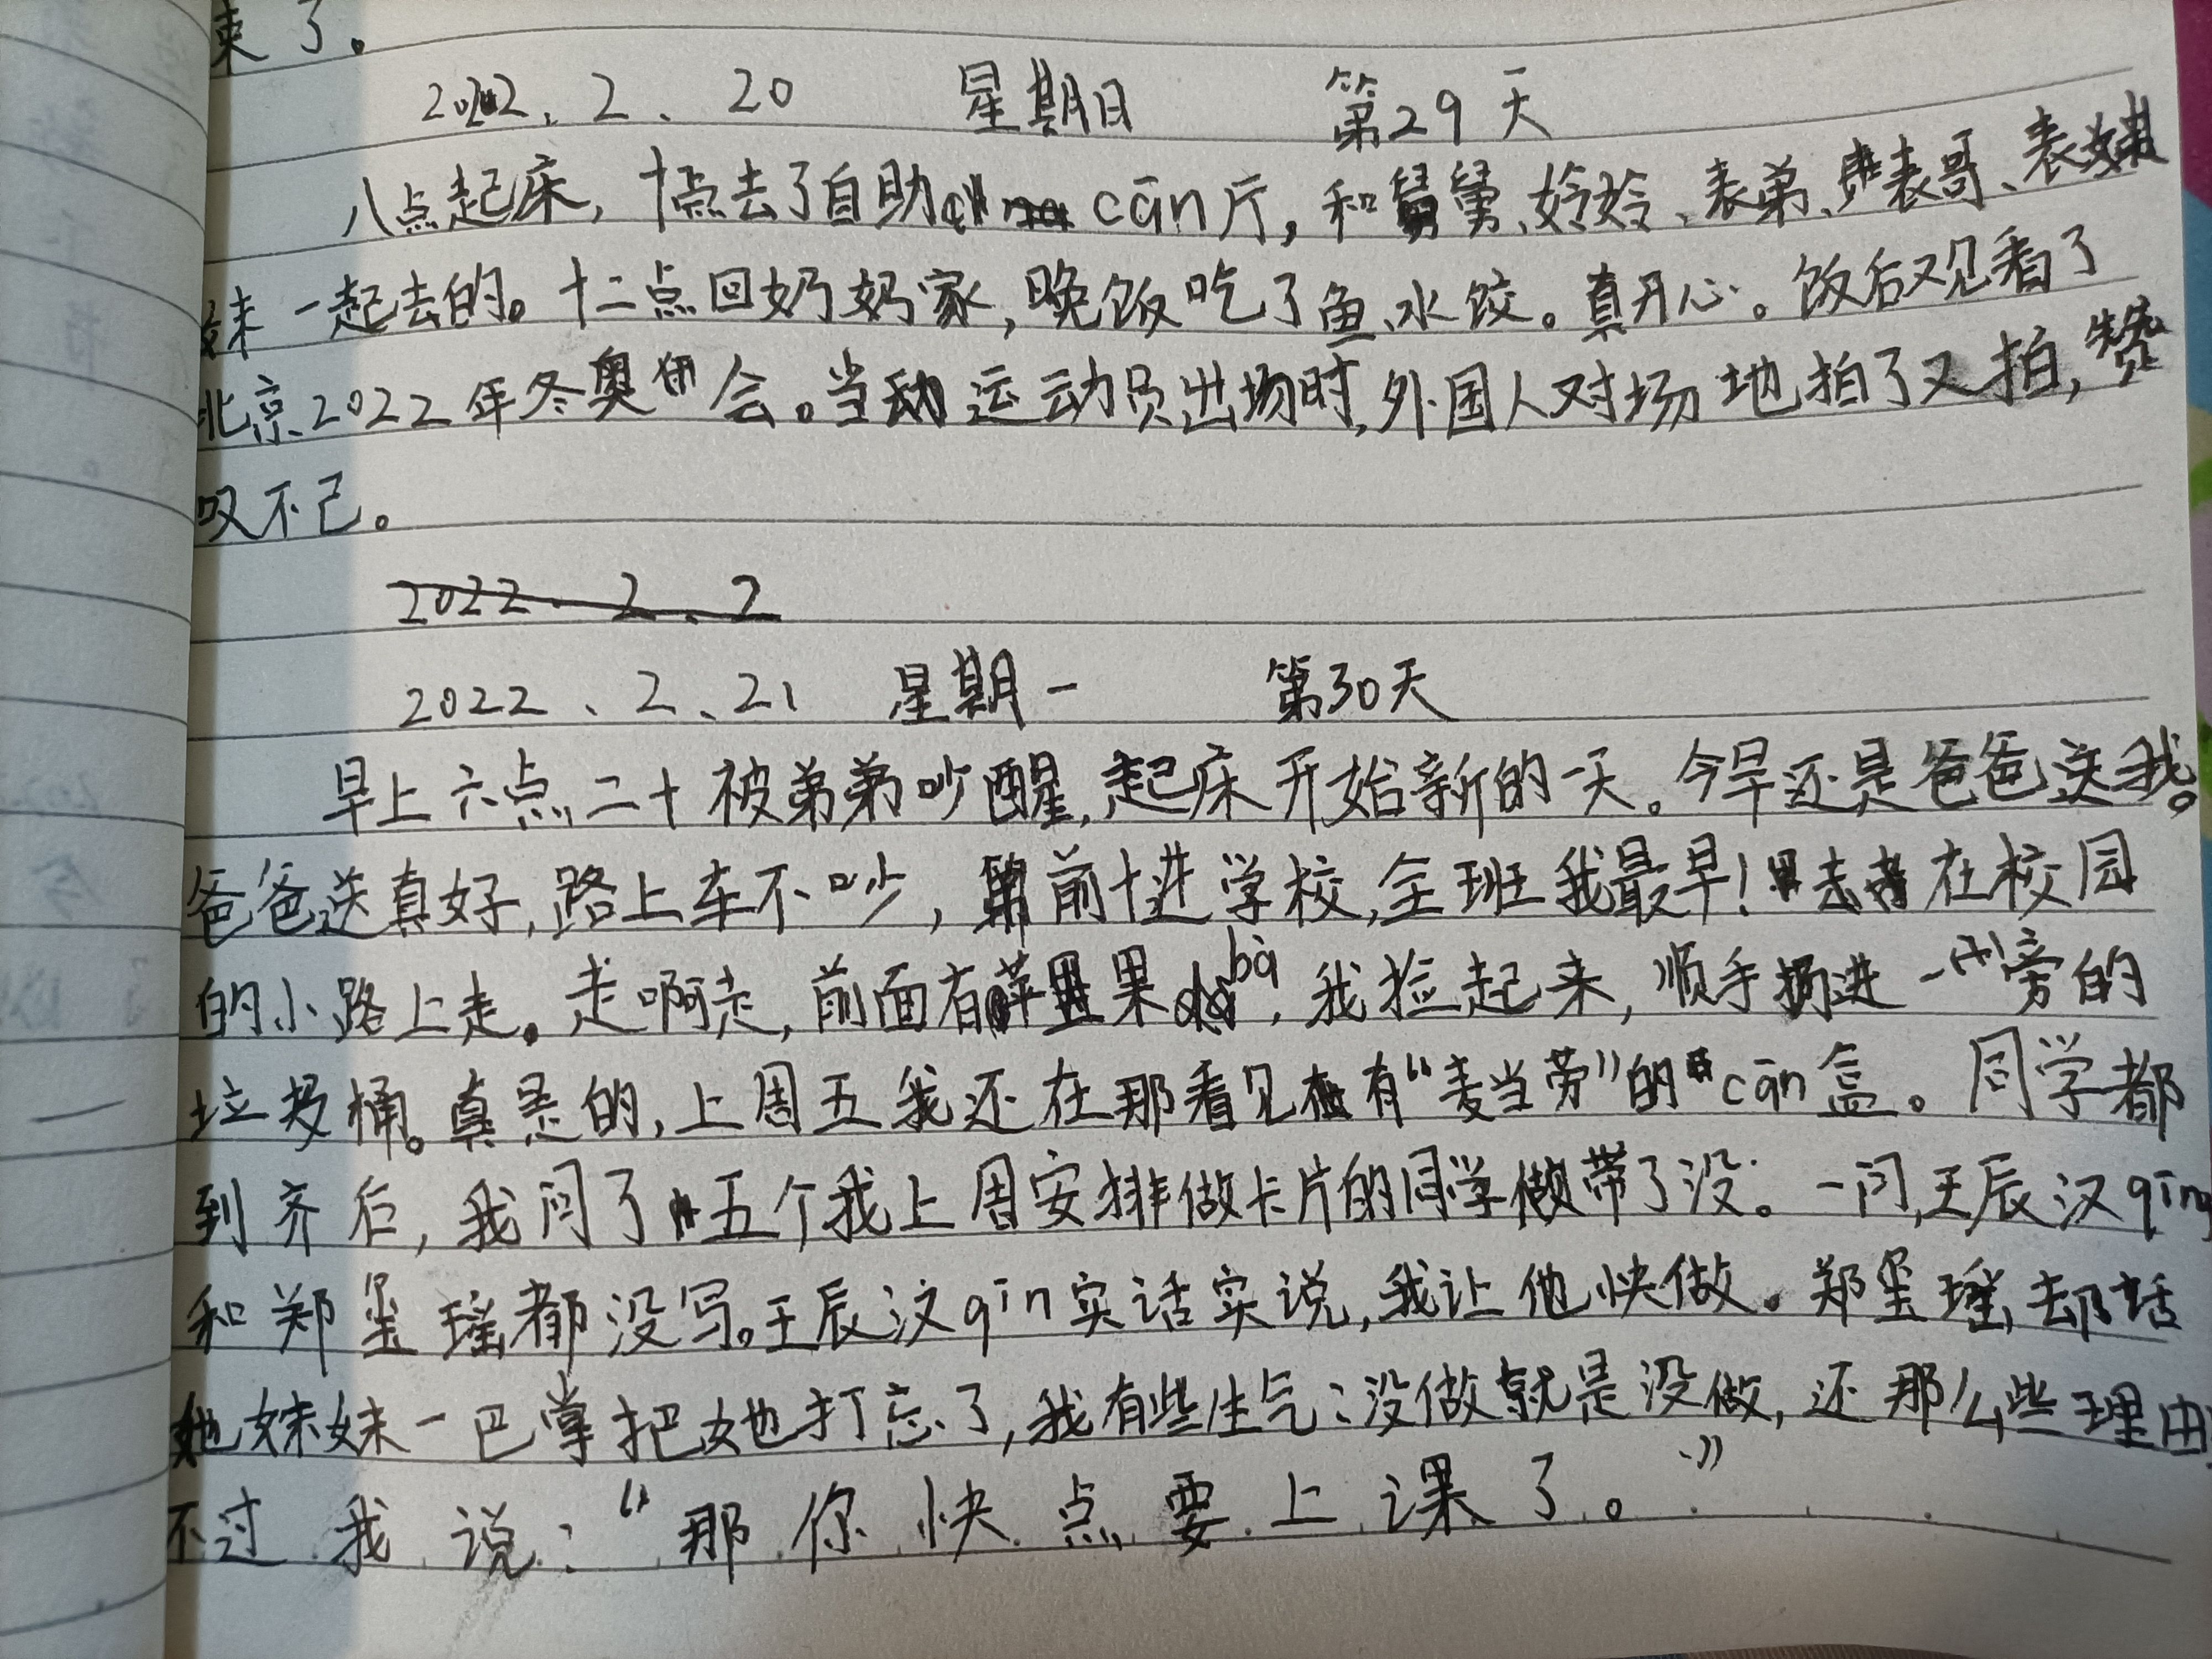 束了。
2022.2.20 星期日 第29天
八点起床，十点去了自助cān厅，和舅舅、妗妗、表弟、表哥、表妹
妹一起去的。十二点回奶奶家，晚饭吃了鱼、水饺。真开心。饭后观看了
北京2022年冬奥会。当运动员出场时，外国人对场地拍了又拍，赞
叹不己。
2022.2.2
2022、2、21 星期一 第30天
早上六点二十被弟弟吵醒，起床开始新的一天。今早还是爸爸送我。
爸爸送真好，路上车不吵，前十进学校，全班我最早！去在校园
的小路上走。走啊走，前面有苹果bǎ，我捡起来，顺手扔进一小旁的
垃圾桶。真是的，上周五我还在那看见有“麦当劳”的cān盒。同学都
到齐后，我问了五个我上周安排做卡片的同学做带了没。一问，王辰汉qīng
和郑玺瑶都没写。王辰汉qīn实话实说，我让他快做。郑玺瑶，却话
她妹妹一巴掌把她打忘了，我有些生气：没做就是没做，还那么些理由，
不过我说：“那你快点要上课了。”